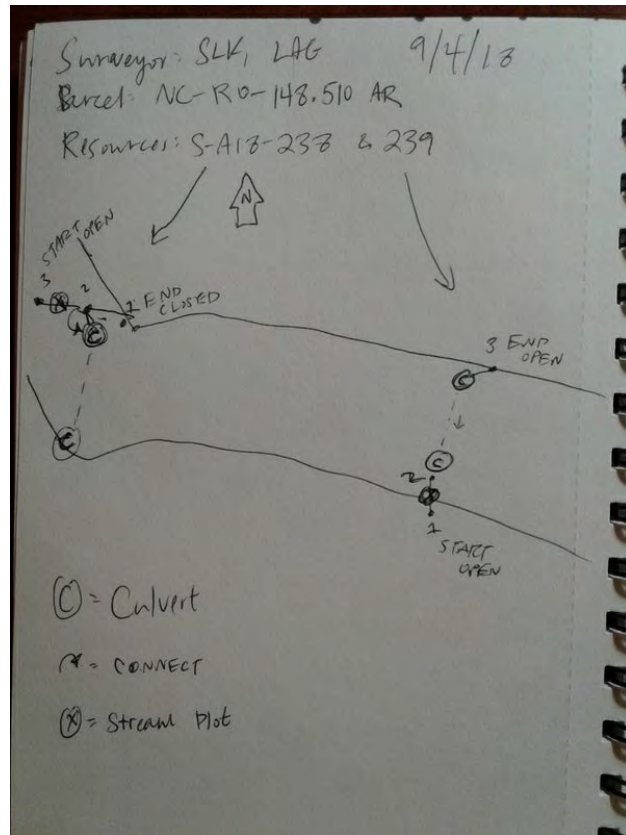 Surveyor: SLK, LAG 9/4/18
Parcel: NC-RO-148.510 AR
Resources: S-A18-238 & 239
N
START OPEN
3
2
1 END
CLOSED
C
C
3 END
OPEN
C
C
2
1
START
OPEN
C = Culvert
= CONNECT
X = Stream Plot